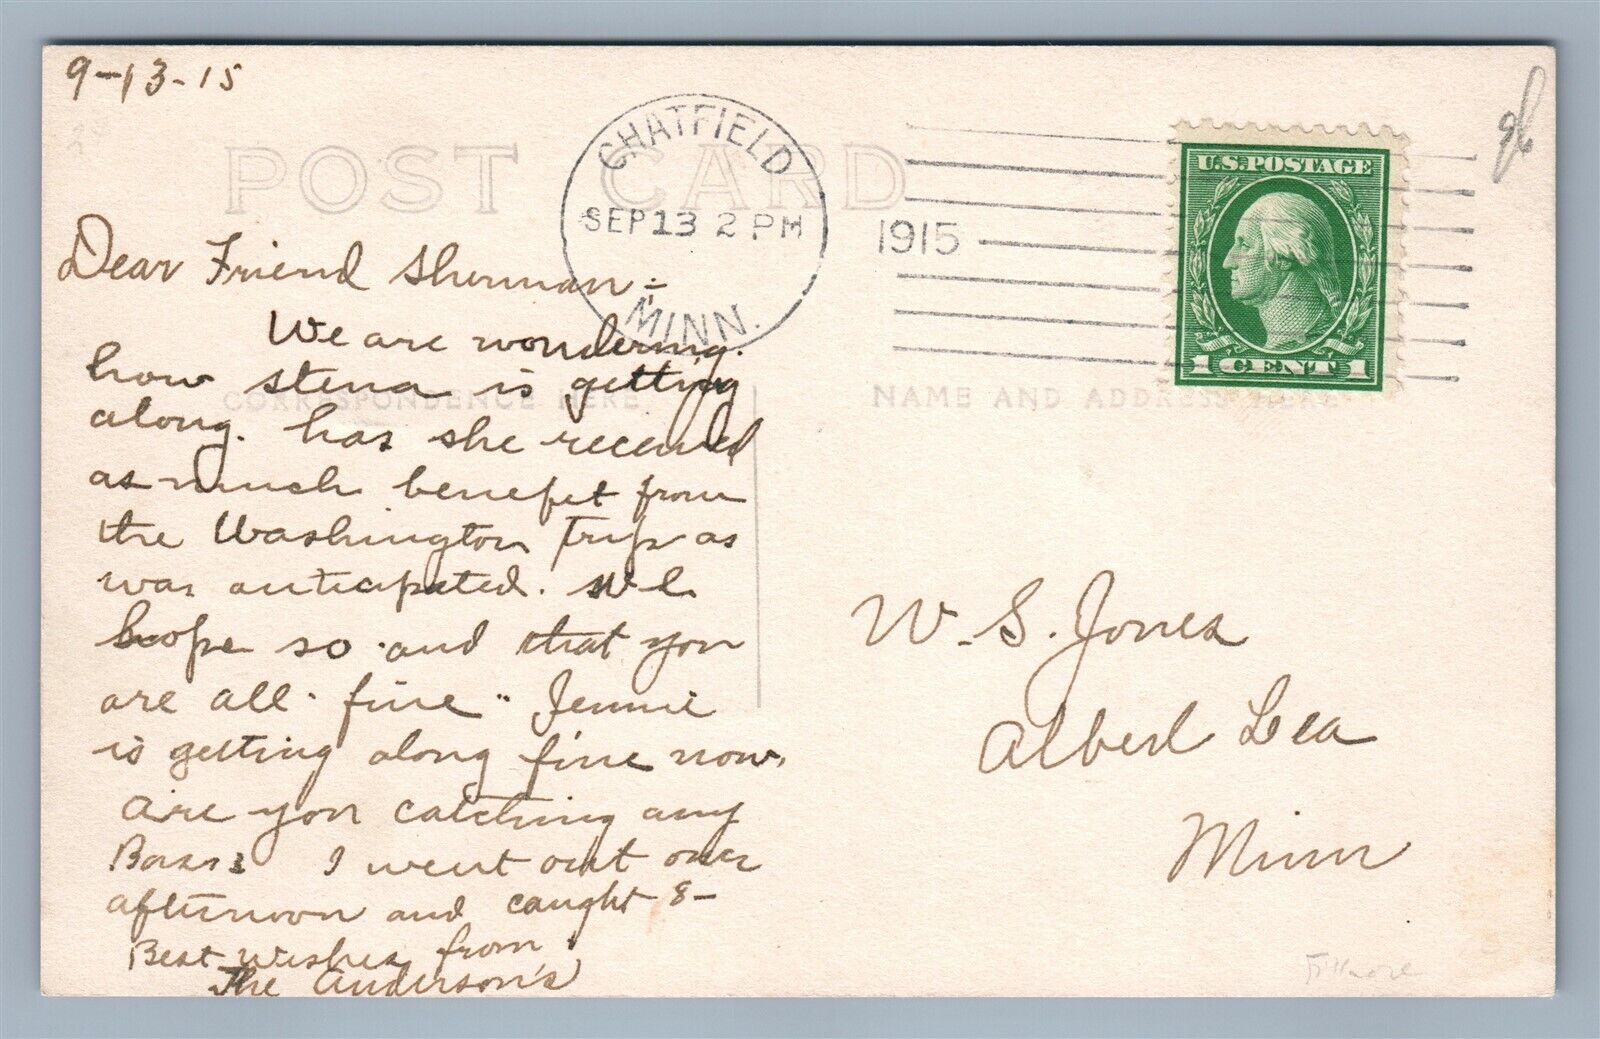 9-13-15
POST CARD
CHATFIELD
SEP 13 2 PM
1915
MINN.
U.S. POSTAGE
1 CENT 1
CORRESPONDENCE HERE
NAME AND ADDRESS HERE
Dear Friend Sherman :-
We are wondering
how stena is getting
along. has she received
as much benefit from
the Washington Trip as
was anticipated. we
hope so and that you
are all fine " Jennie
is getting along fine now.
are you catching any
Bass? I went out one
afternoon and caught 8-
Best Wishes from
The Anderson's
W. S. Jones
Albert Lea
Minn
Fillmore